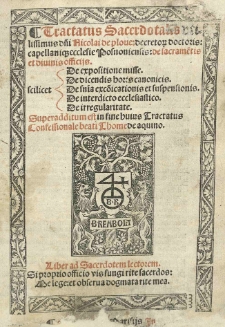 Tractatus Sacerdotalis vti
lissimus dñi Nicolai de ploue: decretorũ doctoris:
capellaniq; ecclesie Posnoniensis: de sacramẽtis
et diuinis officijs.
De expositione misse.
De dicendis horis canonicis.
scilicet
De snia excõicationis et suspensionis.
De interdicto ecclesiastico.
De irregularitate.
Superadditum est in fine huius Tractatus
Confessionale beati Thome de aquino.
B. B.
BREMBOLT
Liber ad Sacerdotem lectorem.
Si proprio officio vis fungi rite sacerdos:
Me lege: et obserua dogmata rite mea.